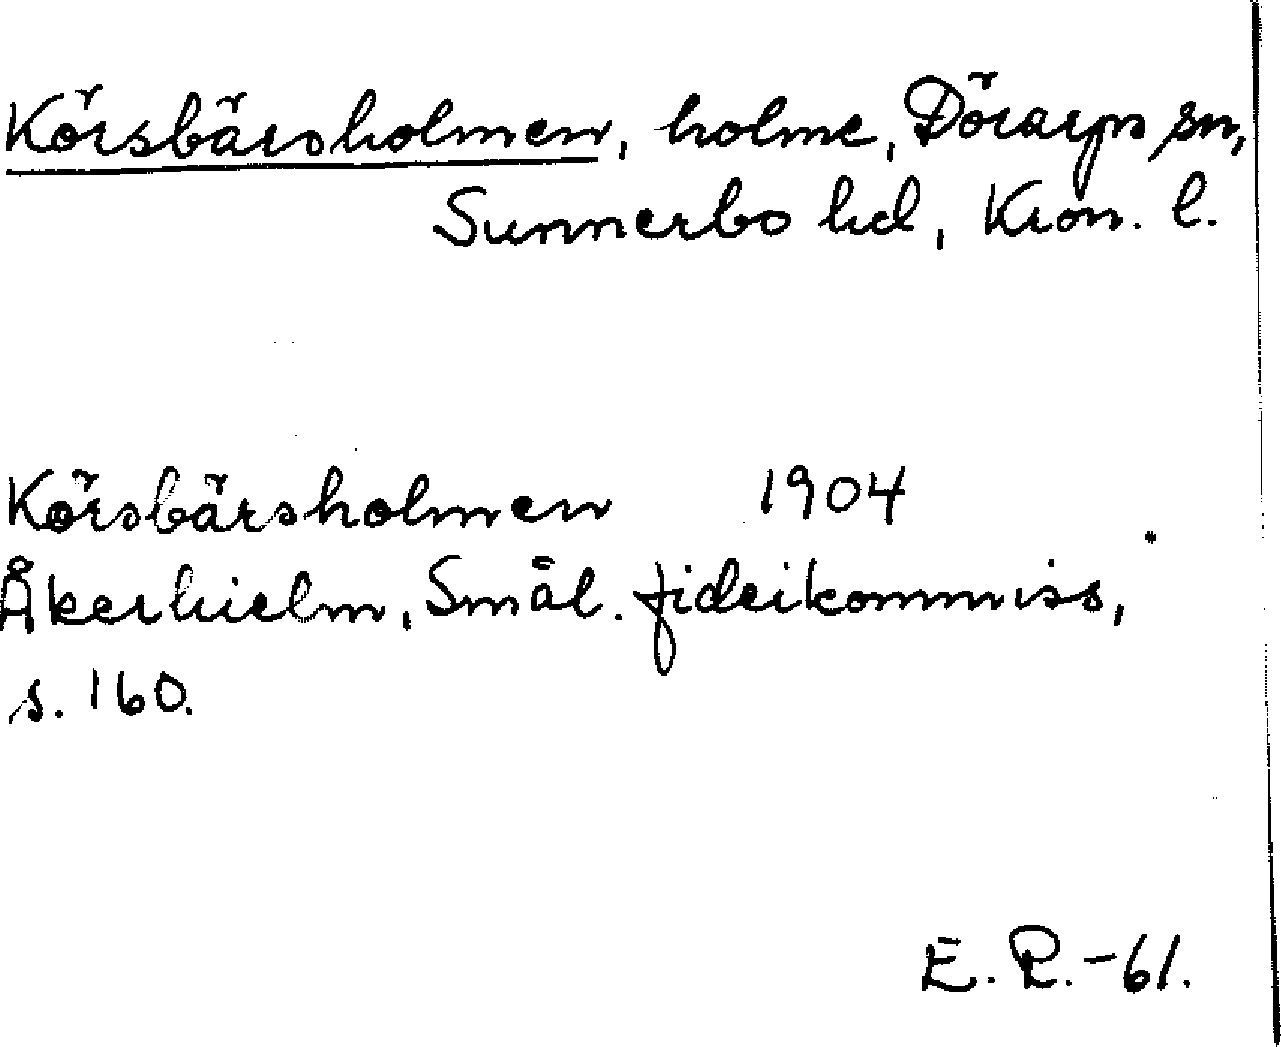 Körsbärsholmen, holme, Dörarps sn,
Sunnerbo hd, Kron. l.
Körsbärsholmen 1904
Åkerhielm, Smål. fideikommiss,
s. 160.
E. R. -61.